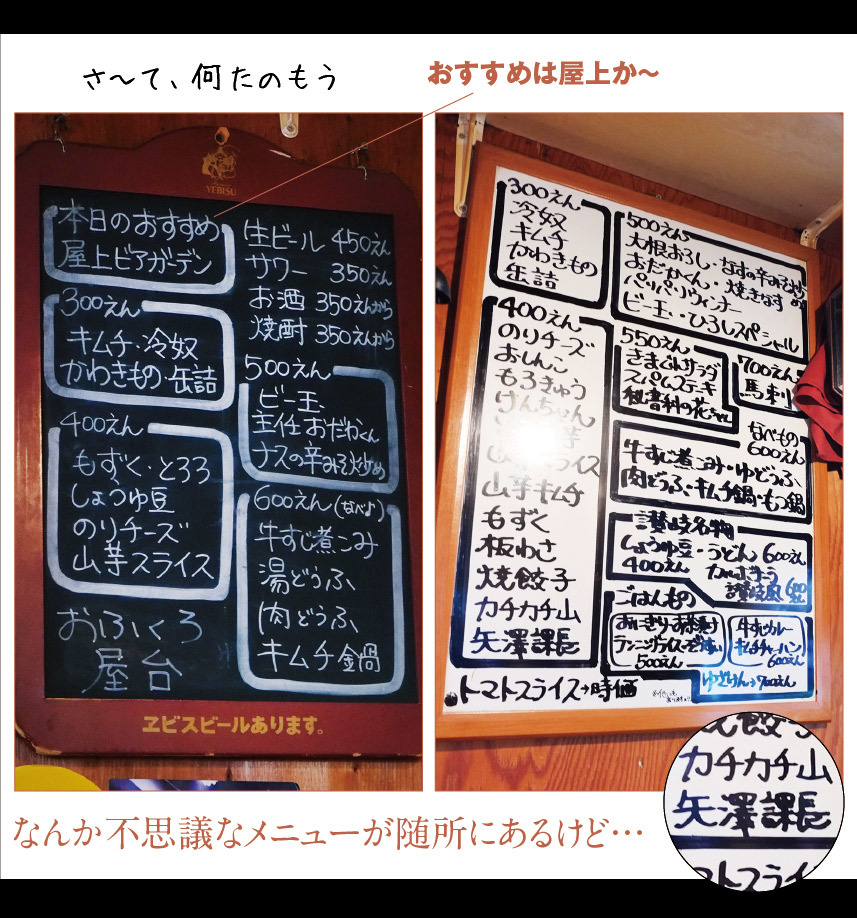 さ〜て、何たのもう
おすすめは屋上か〜
YEBISU
本日のおすすめ
屋上ビアガーデン
300えん
キムチ・冷奴
かわきもの・缶詰
400えん
もずく・とろろ
しょうゆ豆
のりチーズ
山芋スライス
おふくろ
屋台
生ビール 450えん
サワー 350えん
お酒 350えんから
焼酎 350えんから
500えん
ビー玉
主任 おだわくん
ナスの辛みそ炒め
600えん(なべよ)
牛すじ煮こみ
湯どうふ
肉どうふ
キムチ鍋
ヱビスビールあります。
300えん
冷奴
キムチ
かわきもの
缶詰
400えん
のりチーズ
おしんこ
もろきゅう
けんちゃん
山芋キムチ
もずく
板わさ
焼餃子
カチカチ山
矢澤課長
トマトスライス→時価
500えん
大根おろし・なすの辛みそ炒め
おだわくん・焼きなす
パリパリウィンナー
ビー玉・ひろしスペシャル
550えん
きまぐれサラダ
スパムステーキ
秘書科の花ちゃん
700えん
馬刺
なべもの
600えん
牛すじ煮こみ・ゆどうふ
肉どうふ・キムチ鍋・もつ鍋
讃岐名物
しょうゆ豆・うどん 600えん
400えん
讃岐風
ごはんもの
おにぎり・お茶漬け
500えん
牛すじカレー
キムチチャーハン
600えん
700えん
カチカチ山
矢澤課長
なんか不思議なメニューが随所にあるけど…